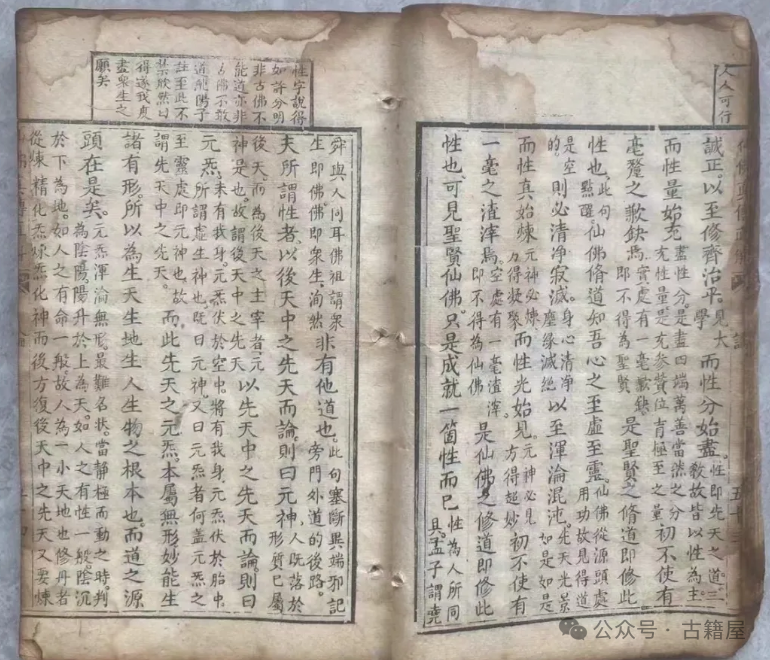 人人可行
誠正。以至修齊治平。見大學而性分始盡。性即先天之道。三教故皆以性為主。
而性量始充盡性分。是盡四端萬善當然之分充性量。是充參贊位育極至之量初不使有
毫釐之歉缺焉。實處有一毫歉缺即不得為聖賢是聖賢之脩道即修此
性也。此句點醒仙佛脩道如吾心之至虛至靈。仙佛從源頭處用功故見得道
是空的則必清淨寂滅。身心清淨塵緣滅絕以至渾淪混沌。先天光景如是如是
而性真始煉元神必煉方得凝聚而性光始見。元神必見方得超妙初不使有
一毫之渣滓焉。空處有一毫渣滓即不得為仙佛是仙佛之修道即修此
性也。可見聖賢仙佛。只是成就一箇性而已性為人所同且孟子謂堯
性字說得
如許分明
非古佛不
能道亦非
古佛不敢
道龍陽子
註至此不
禁欣然曰
得遂我度
盡衆生之
願矣
舜與人同耳佛祖謂衆生即佛。佛即衆生。洵然非有他道也。此句塞斷異端邪記旁門外道的後路。
夫所謂性者。以後天中之先天而論。則曰元神。人既落於形質已屬
後天。而為後天之主宰者。元神是也。故謂後天中之先天以先天中之先天而論則曰
元炁。未有我身。元炁伏於空中。將有我身元炁伏於胎中。所謂虛生神也。既曰元神。又曰元炁者何。蓋元炁之
至靈處即元神也。故謂先天中之先天。而此先天之元炁。本屬無形妙能生
諸有形。所以為生天生地生人生物之根本也。而道之源
頭在是矣。元炁渾淪無形最難名狀。當靜極而動之時判為陰陽。陽升於上為天。如人之有性一般。陰沉
於下為地。如人之有命一般。故人為一小天地也修丹者
從煉精化炁煉炁化神而後方復後天中之先天又要煉
公众号·古籍屋